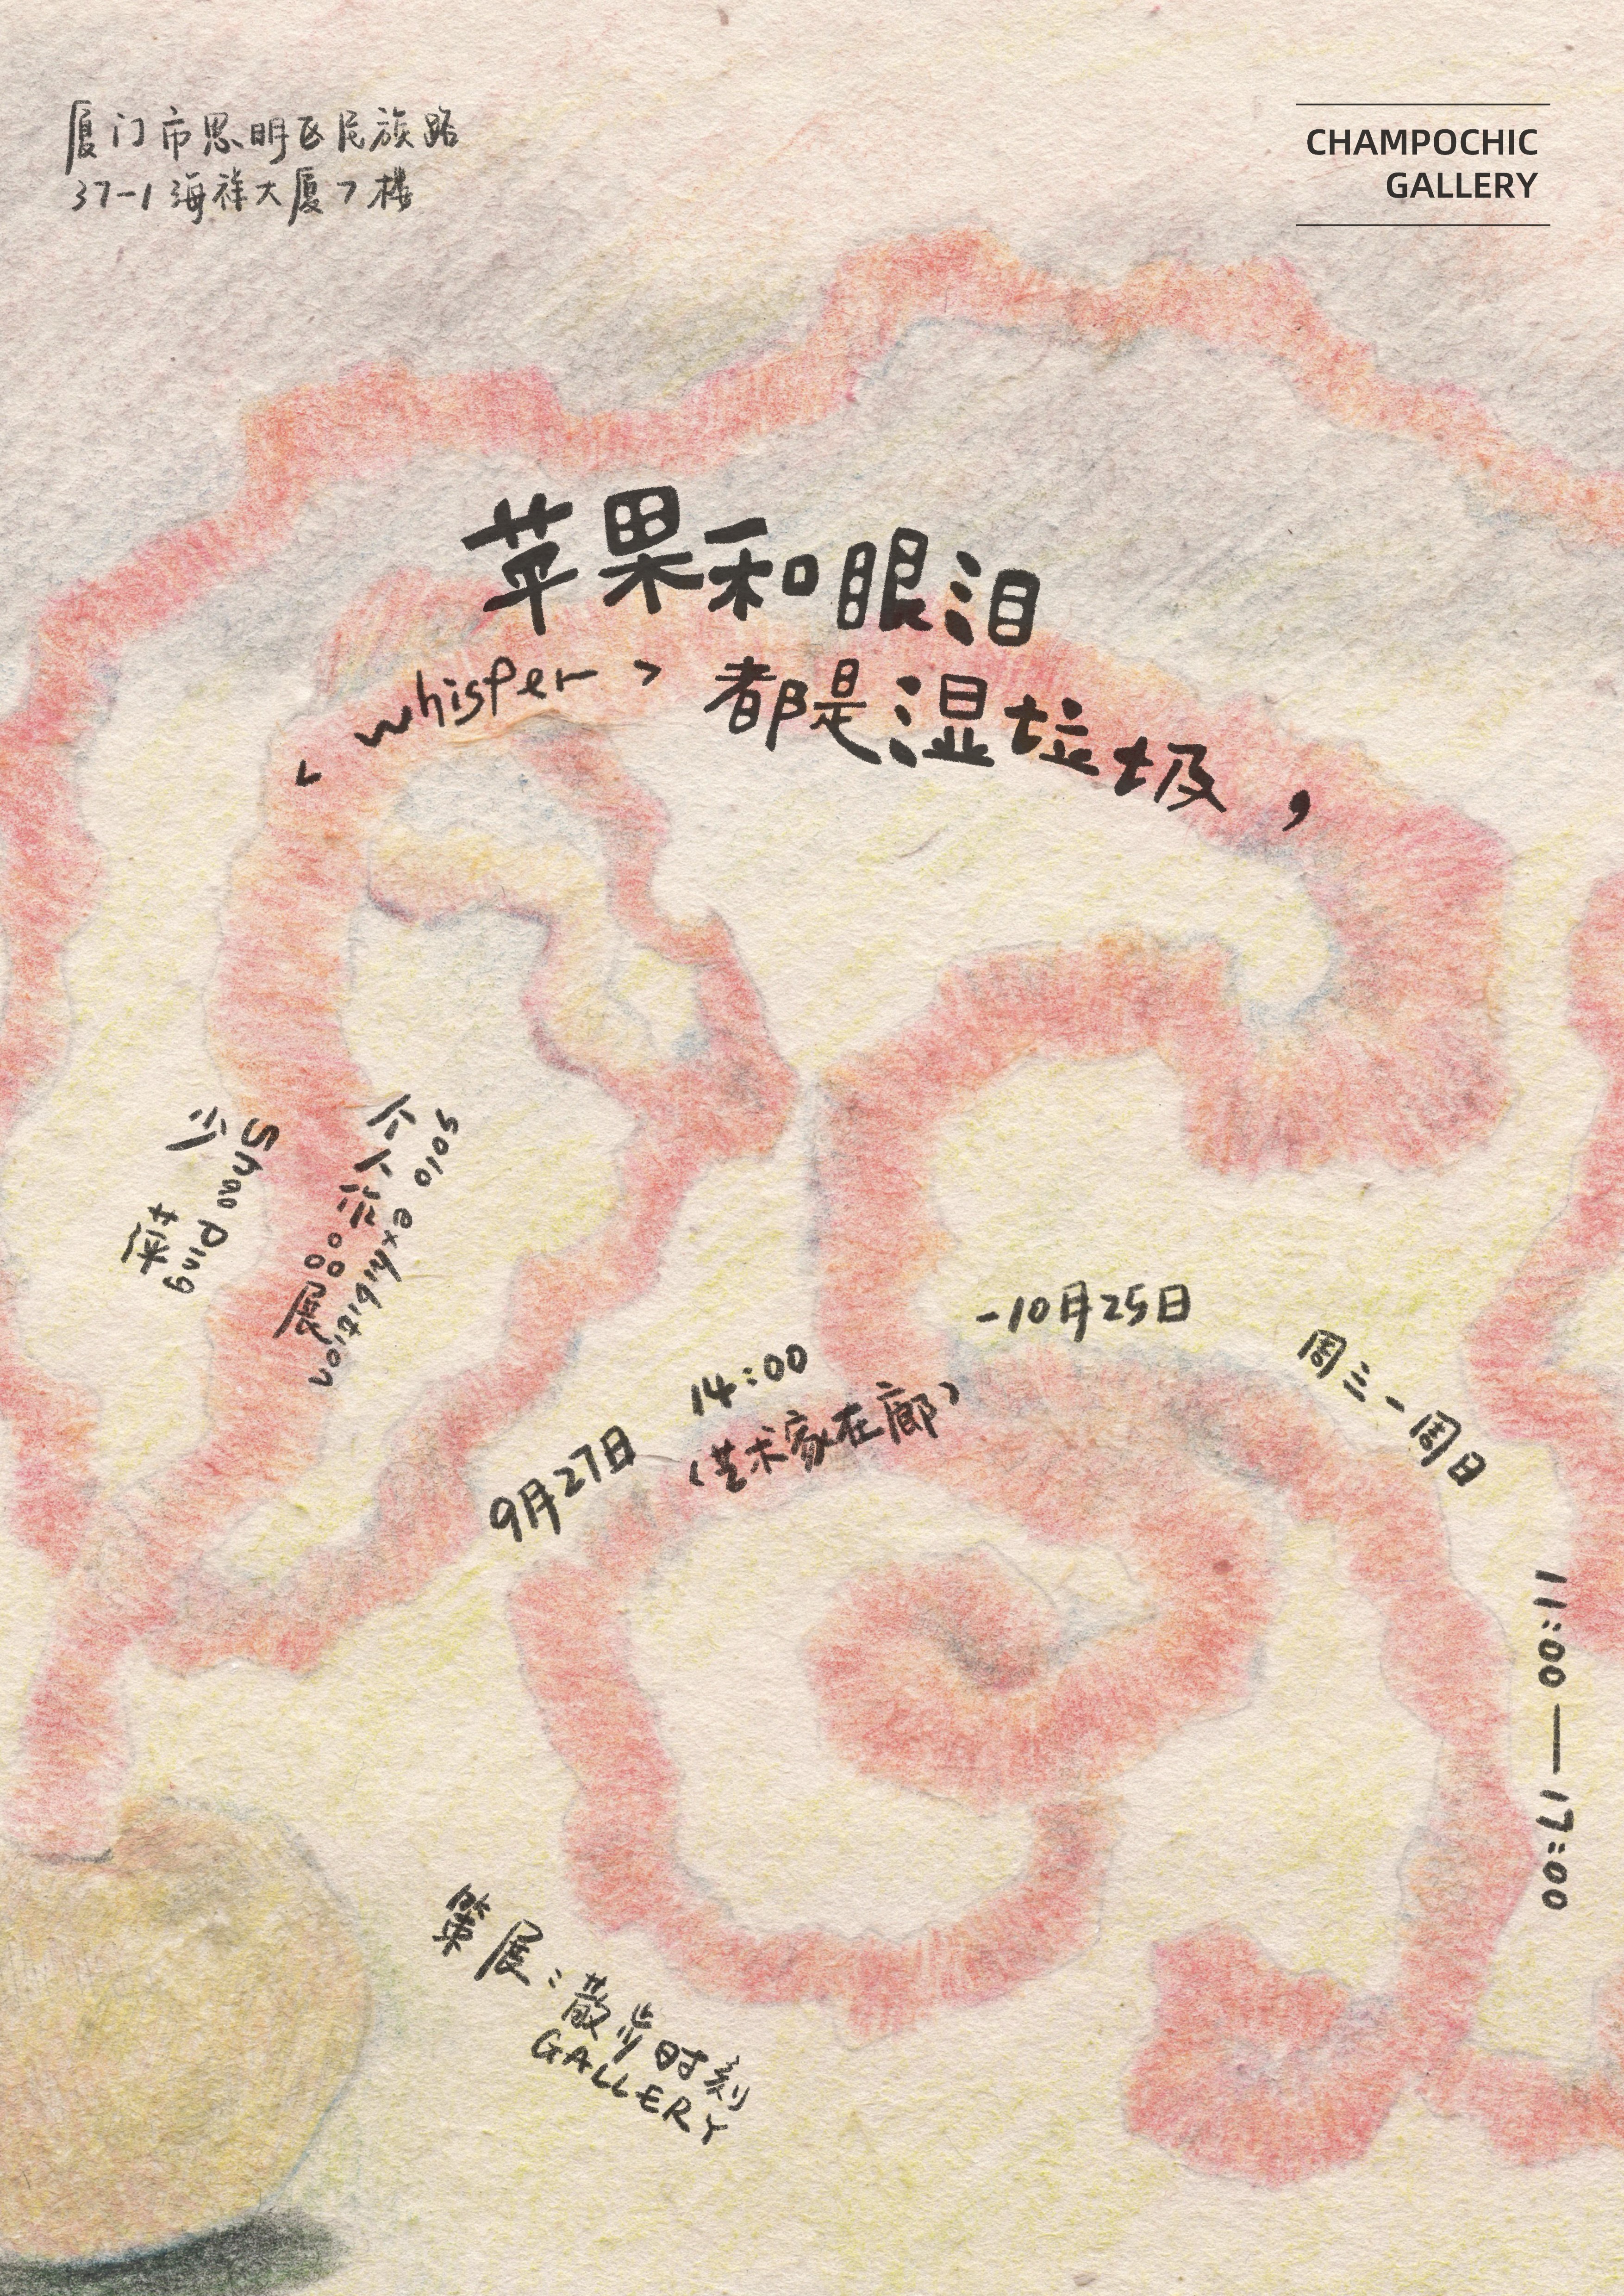 厦门市思明区民族路
37-1海祥大厦7楼
CHAMPOCHIC
GALLERY
苹果和眼泪
<whisper> 都是湿垃圾,
少苹
Shao Ping
个人作品展
solo exhibition
9月27日 14:00 -10月25日
(艺术家在廊)
周三-周日
11:00—17:00
策展:散步时刻
GALLERY